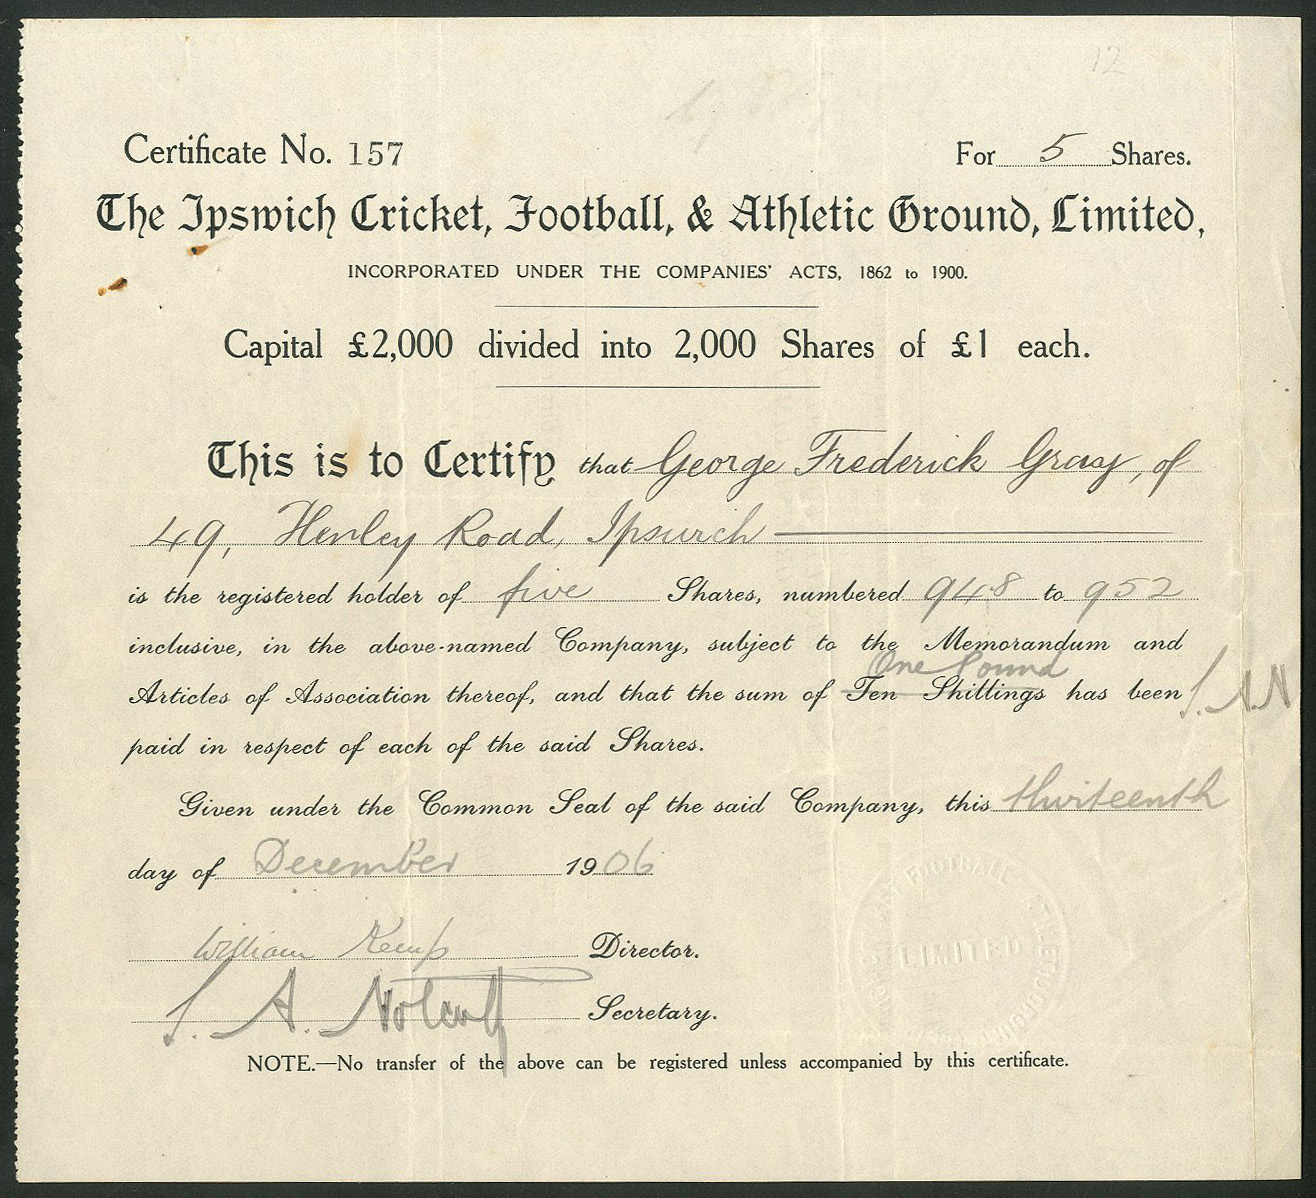 12
Certificate No. 157 For 5 Shares.
The Ipswich Cricket, Football, & Athletic Ground, Limited,
INCORPORATED UNDER THE COMPANIES' ACTS, 1862 to 1900.
Capital £2,000 divided into 2,000 Shares of £1 each.
This is to Certify that George Frederick Gray, of
49, Henley Road, Ipswich
is the registered holder of five Shares, numbered 948 to 952
inclusive, in the above-named Company, subject to the Memorandum and
One Pound
Articles of Association thereof, and that the sum of Ten Shillings has been S.A.N
paid in respect of each of the said Shares.
Given under the Common Seal of the said Company, this thirteenth
day of December 1906
William Kemp Director.
S. A. Notcutt Secretary.
FOOTBALL
LIMITED
NOTE.—No transfer of the above can be registered unless accompanied by this certificate.